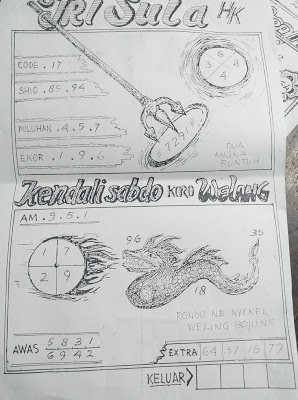 Tri Sula HK
CODE . 17
SHIO . 85 . 94
PULUHAN . 4 . 5 . 7
EKOR . 1 . 9 . 6
3 6
8
4
DUA
ANGKA
RUNTUH
Kendali sabdo KORO Welang
AM . 9 . 5 . 1
1 7
2 9
96
35
18
RONDO ND NYEKEL
WELING BOJONE
AWAS 5 8 3 1
6 9 4 2
EXTRA 64 37 16 77
KELUAR